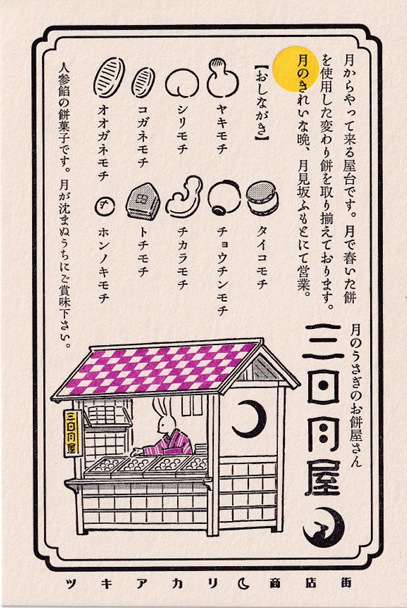 月からやって来る屋台です。月で舂いた餅
を使用した変わり餅を取り揃えております。
月のきれいな晩、月見坂ふもとにて営業。
【おしながき】
ヤキモチ
シリモチ
コガネモチ
オオガネモチ
タイコモチ
チョウチンモチ
チカラモチ
トチモチ
ホンノキモチ
人参餡の餅菓子です。月が沈まぬうちにご賞味下さい。
月のうさぎのお餅屋さん
三日月屋
三日月屋
ツキアカリ商店街